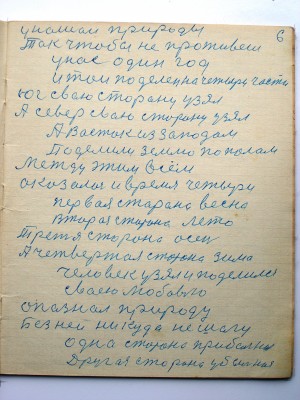 6
училоги природы
Так чтобы не проживеш
у нас один год
и той поделен на четыри части
юг сваю сторану узял
А север сваю сторону узял
А Восток из западам
Поделили землю пополам
Между этим всём
оказолося и время четыри
первая старана весна
вторая сторона лето
Третя сторона осен
А четвертая сторона зима
человек узял и поделился
сваею любовю
опазнал природу
Без ней никуда не шагу
одна сторона прибольная
Другая сторона убыльная